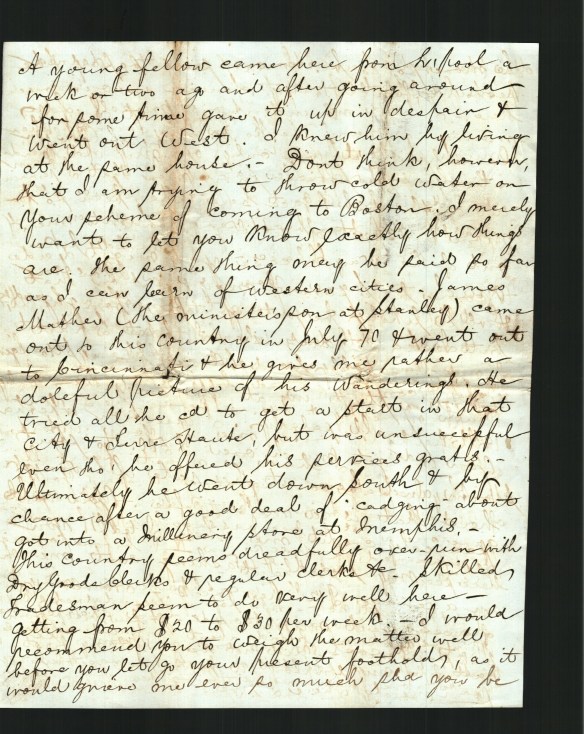 A young fellow came here from L'pool a
week or two ago and after going around
for some time gave it up in despair &
went out West. I knew him by living
at the same house. - Dont think, however,
that I am trying to throw cold water on
your scheme of coming to Boston. I merely
want to let you know exactly how things
are. The same thing may be said so far
as I can learn of western cities. James
Mather (the ministers son at Stanley) came
out to this country in July 70 & went out
to Cincinnati & he gives me rather a
doleful picture of his wanderings. He
tried all he cd to get a start in that
city & Terre Haute, but was unsuccessful
even tho' he offered his services gratis. -
Ultimately he went down south & by
chance after a good deal of cadging about
got into a Millinery store at Memphis. -
This country seems dreadfully over-run with
Dry Goods clerks & regular clerks &c. Skilled
Tradesman seem to do very well here -
getting from $20 to $30 per week. - I would
recommend you to weigh the matter well
before you let go your present footholds, as it
would grieve me ever so much shd you be